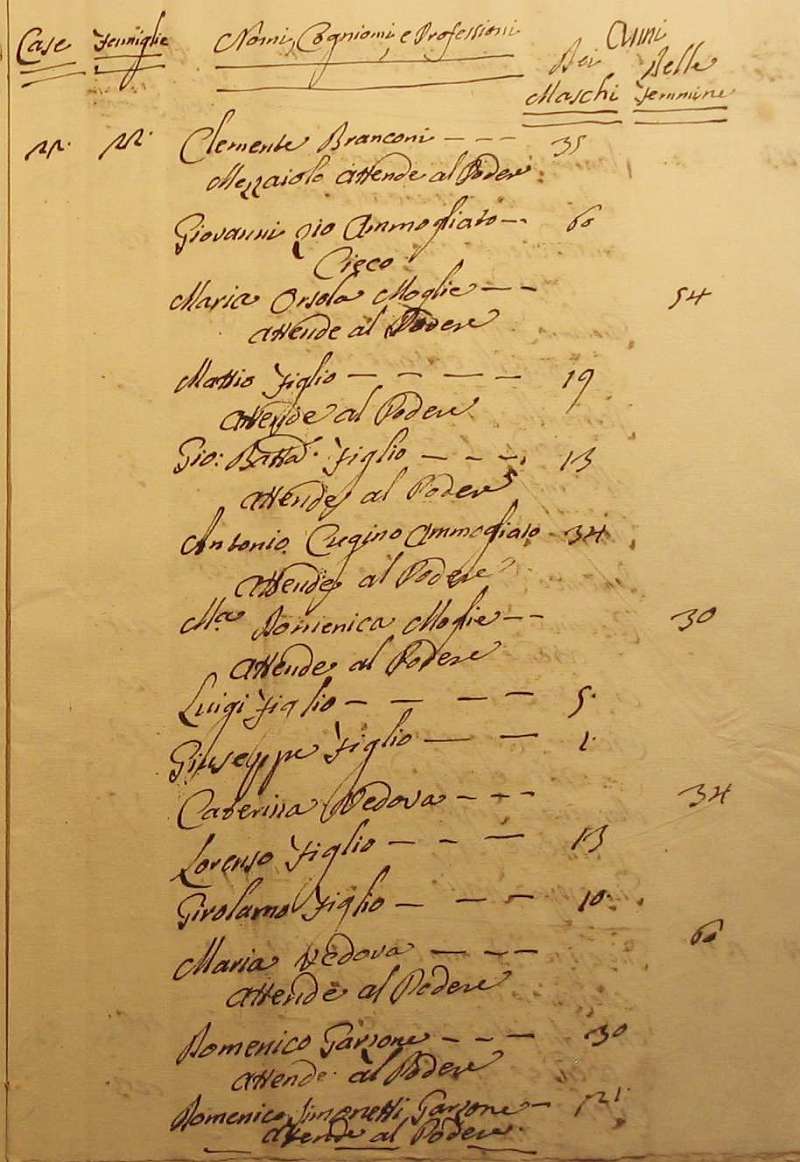 Case Femiglie Nomi, Cogniomi, e Professioni Anni
Dei Delle
Maschi Femmine
22. 22. Clemente Branconi --- 35
Mezzaiolo attende al Podere
Giovanni Zio Ammogliato -- 60
Cieco
Maria Orsola Moglie --- 54
attende al Podere
Mattio Figlio ---- 19
attende al Podere
Gio: Batta. Figlio ---- 13
attende al Podere
Antonio Cugino Ammogliato - 34
attende al Podere
Ma. Domenica Moglie -- 30
attende al Podere
Luigi Figlio ---- 5.
Giuseppe Figlio -- -- 1.
Caterina Vedova --- 34
Lorenso Figlio --- 13
Girolamo Figlio ---- 10.
Maria Vedova --- 60
attende al Podere
Domenico Garzone --- 30
attende al Podere
Domenico Simonetti Garzone - 21.
attende al Podere.